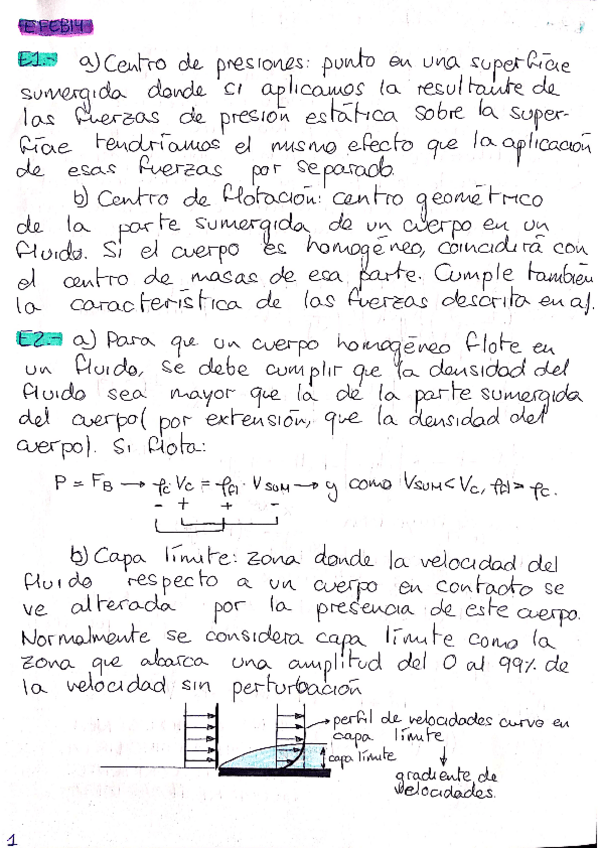 EFEB14
E1.- a) Centro de presiones: punto en una superficie
sumergida donde si aplicamos la resultante de
las fuerzas de presión estática sobre la super-
ficie tendríamos el mismo efecto que la aplicación
de esas fuerzas por separado.
b) Centro de flotación: centro geométrico
de la parte sumergida de un cuerpo en un
fluido. Si el cuerpo es homogéneo, coincidirá con
el centro de masas de esa parte. Cumple también
la característica de las fuerzas descrita en a).
E2.- a) Para que un cuerpo homogéneo flote en
un fluido, se debe cumplir que la densidad del
fluido sea mayor que la de la parte sumergida
del cuerpo (por extensión, que la densidad del
cuerpo). Si flota:
P = FB → ρc Vc = ρfl · VSUM → y como VSUM < Vc, ρfl > ρc.
- + + -
b) Capa límite: zona donde la velocidad del
fluido respecto a un cuerpo en contacto se
ve alterada por la presencia de este cuerpo.
Normalmente se considera capa límite como la
zona que abarca una amplitud del 0 al 99% de
la velocidad sin perturbación
perfil de velocidades curvo en
capa límite
capa límite
gradiente de
velocidades.
1